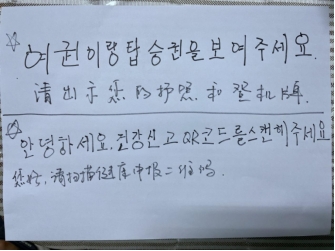 여권이랑탑승권을 보여주세요.
请出示您的护照和登机牌
안녕하세요. 건강신고 QR코드를스캔해주세요
您好,请扫描健康申报二维码.